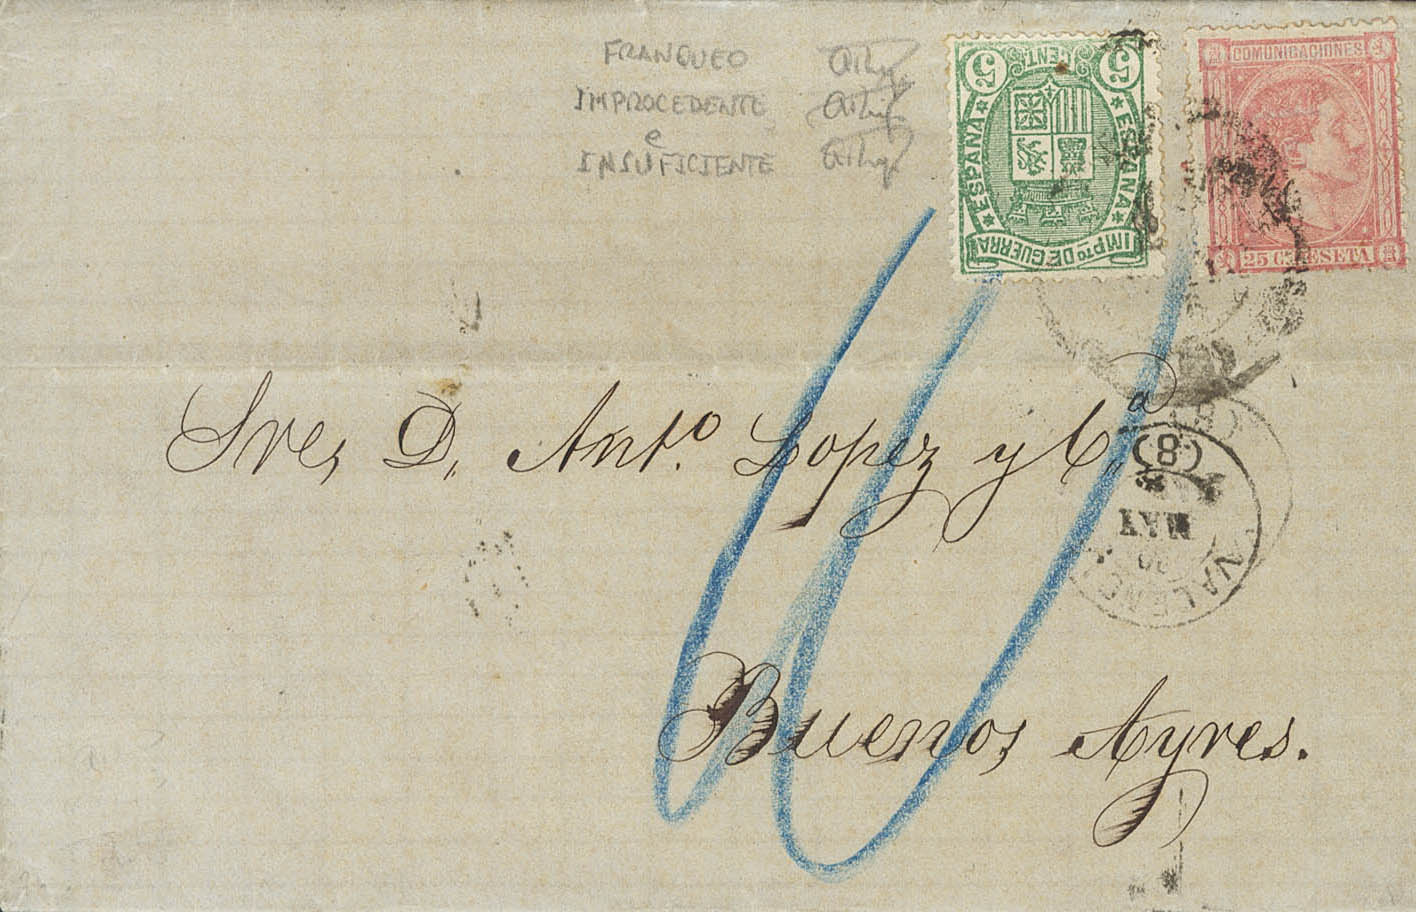 FRANQUEO
IMPROCEDENTE
e
INSUFICIENTE
5 CENT 5
ESPAÑA
ESPAÑA
IMPTO DE GUERRA
COMUNICACIONES
25 C. PESETA
Sres, D, Anto. Lopez y Ca
(8)
MAY
VALENC
Buenos Ayres.